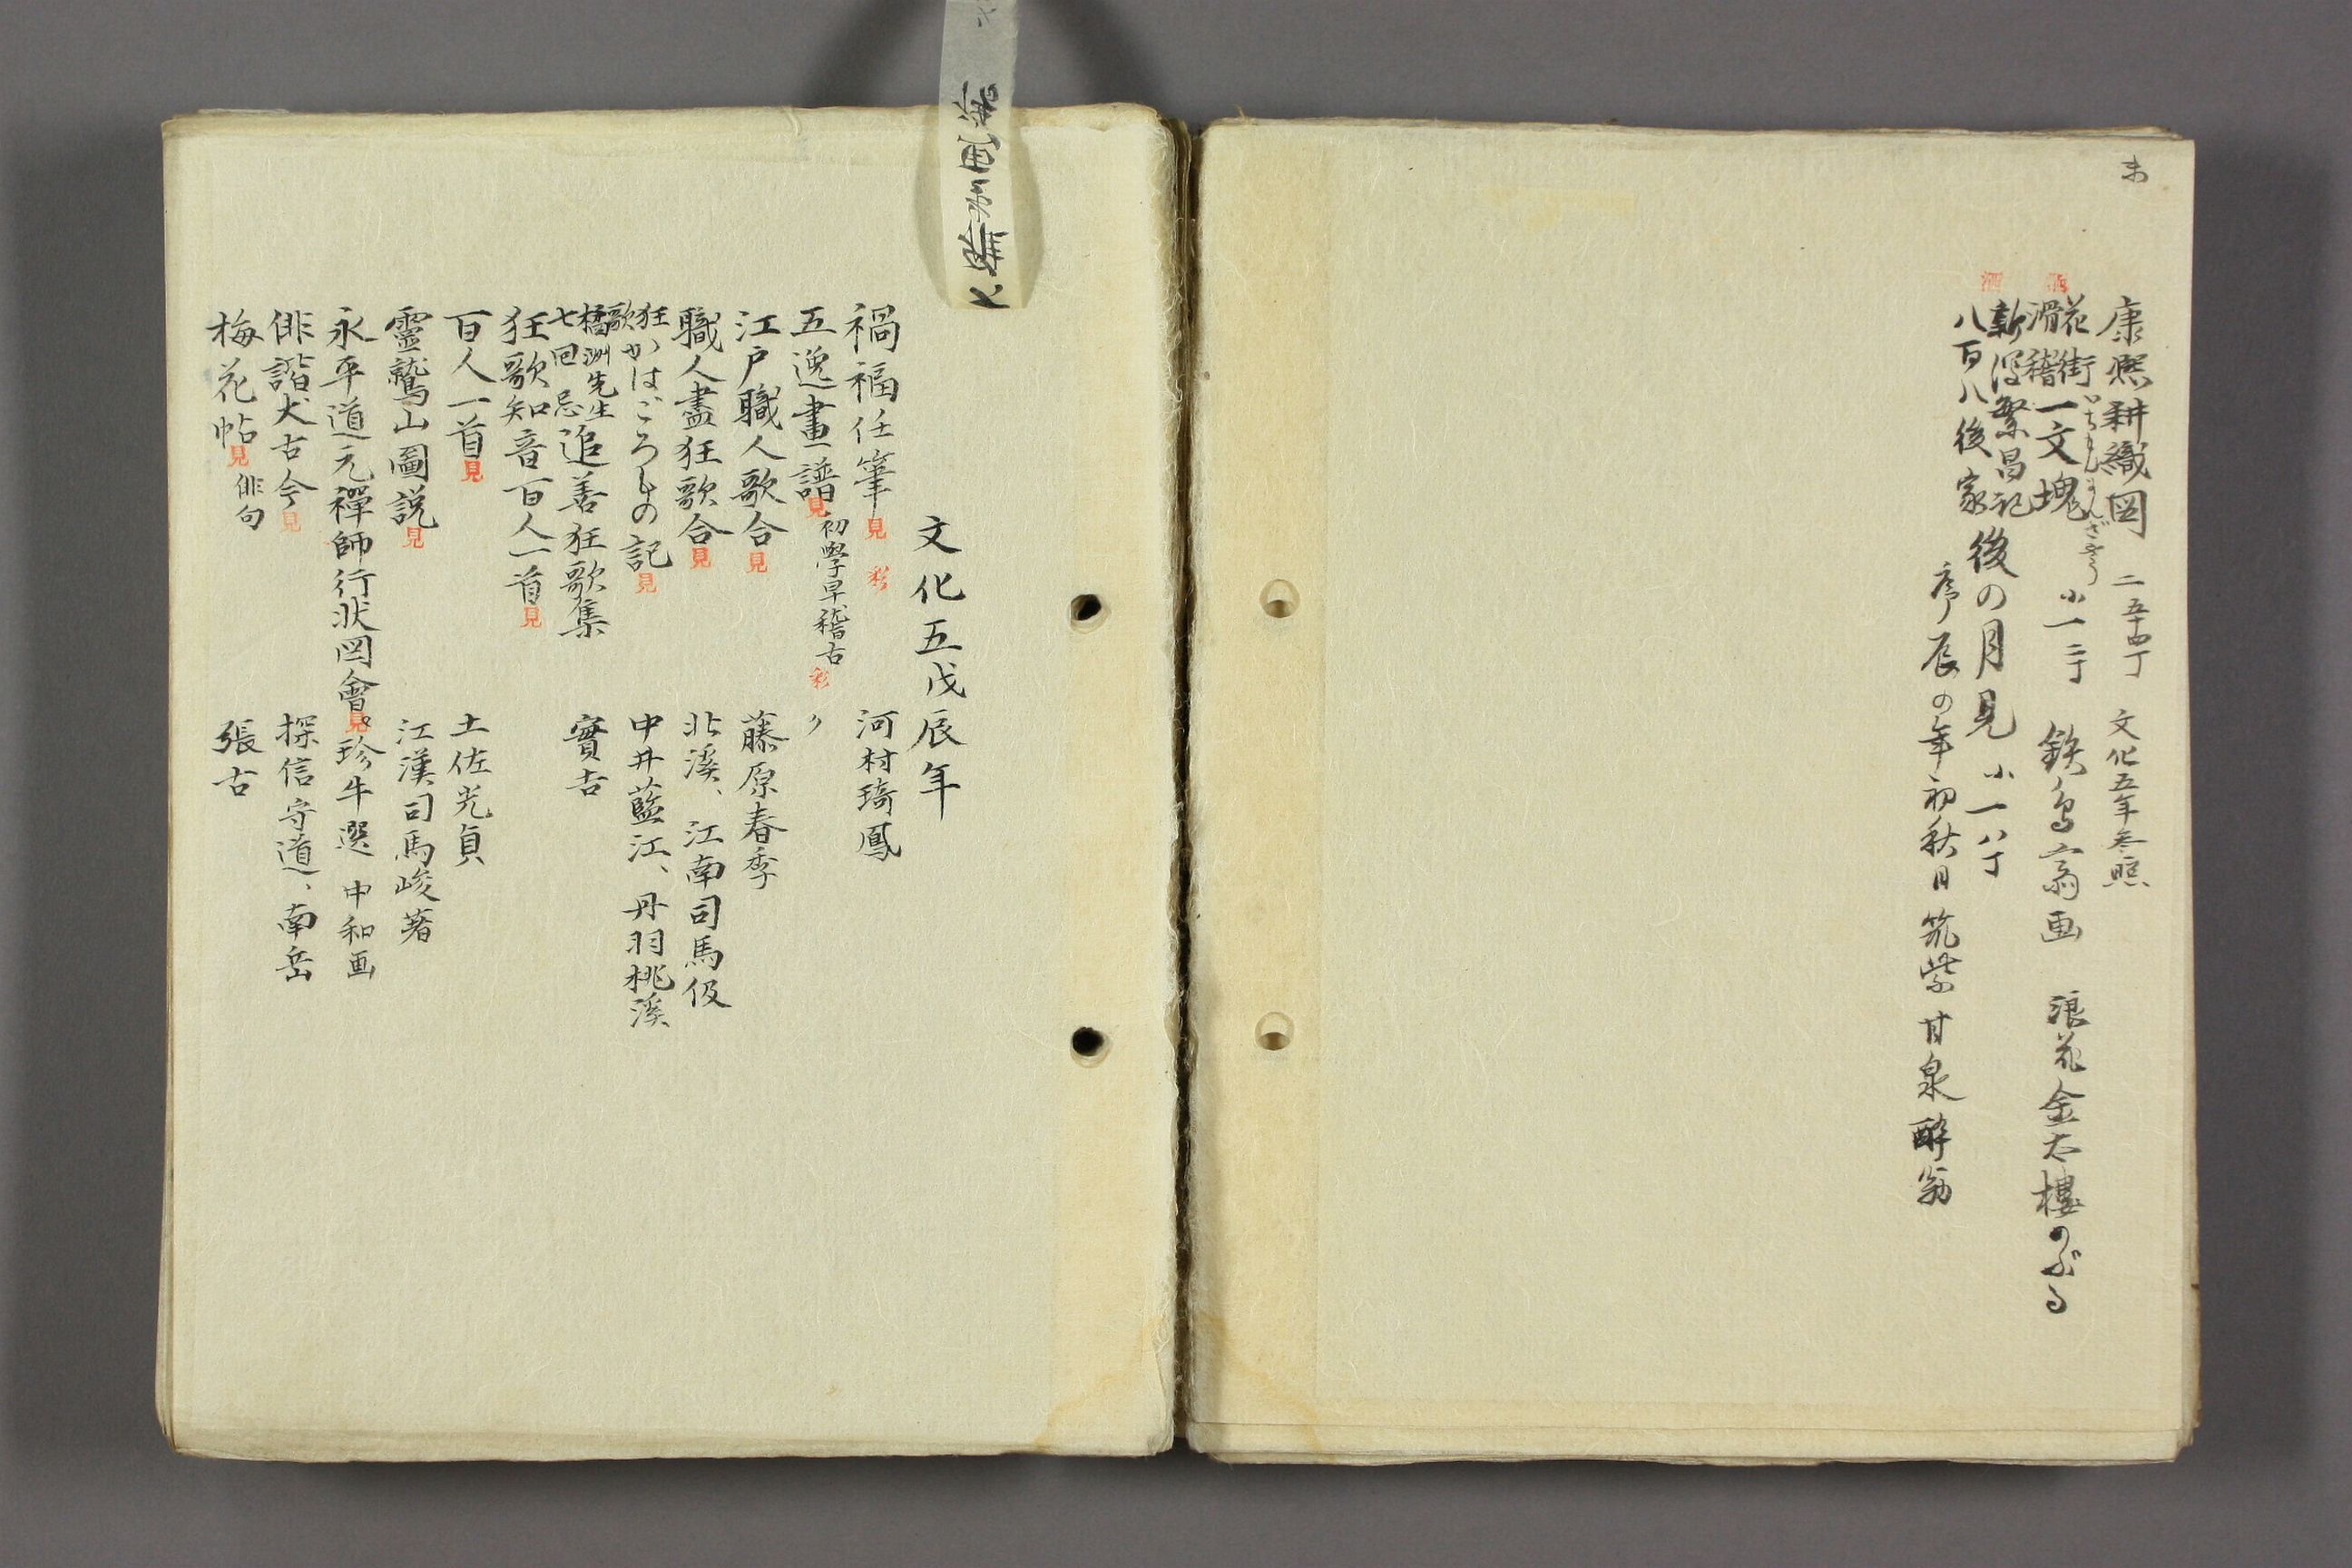 康熙耕織図 二 五十四丁 文化五年参照
花街滑稽 一文塊 小一 二十丁 鉄鳥翁画 浪花金太楼のぶる
洒
新深繁昌記 八百八後家 後の月見 小一 八丁
洒
序 辰の年初秋日 筑紫 甘泉酔翁
文化五戊辰年
禍福任筆 見 彩 河村琦鳳
五逸畫譜 見 初學早稽古 彩 〃
江戸職人歌合 見 藤原春季
職人盡狂歌合 見 北溪、江南司馬伋
狂歌かはごろもの記 見 中井藍江、丹羽桃溪
橘洲先生七回忌追善狂歌集 實古
狂歌知音百人一首 見
百人一首 見 土佐光貞
靈鷲山圖説 見 江漢司馬峻著
永平道元禪師行状図會 見 珍牛選 中和画
俳諧犬古今 見 探信守道、南岳
梅花帖 見 俳句 張古